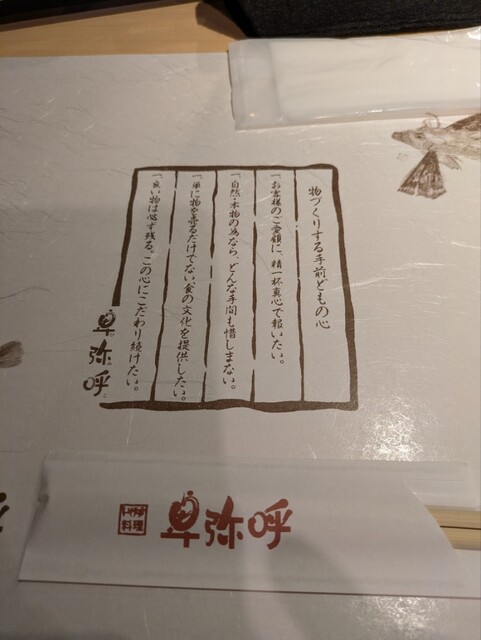 物づくりする手前どもの心
一、お客様のご愛顧に、精一杯真心で報いたい。
一、自然・本物の為なら、どんな手間も惜しまない。
一、単に物を売るだけでない食の文化を提供したい。
一、良い物は必ず残る、この心にこだわり続けたい。
卑弥呼
料理
卑弥呼